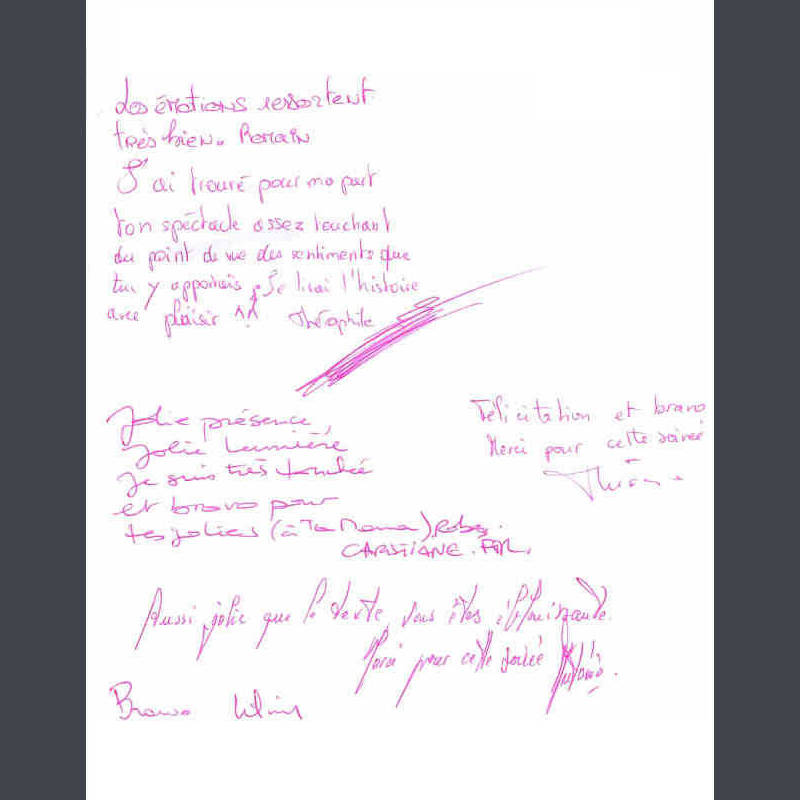 Les émotions ressortent
très bien. Romain
J'ai trouvé pour ma part
ton spéctacle assez touchant
du point de vue des sentiments que
tu y apportais. Je lirai l'histoire
avec plaisir ^^ Théophile
Jolie présence,
Jolie Lumière
Je suis très touchée
et bravo pour
tes jolies (à ta Mama) Robes.
Félicitation et bravo
Merci pour cette soirée
Aussi jolie que le texte, vous êtes éblouissante.
Merci pour cette soirée
Bravo